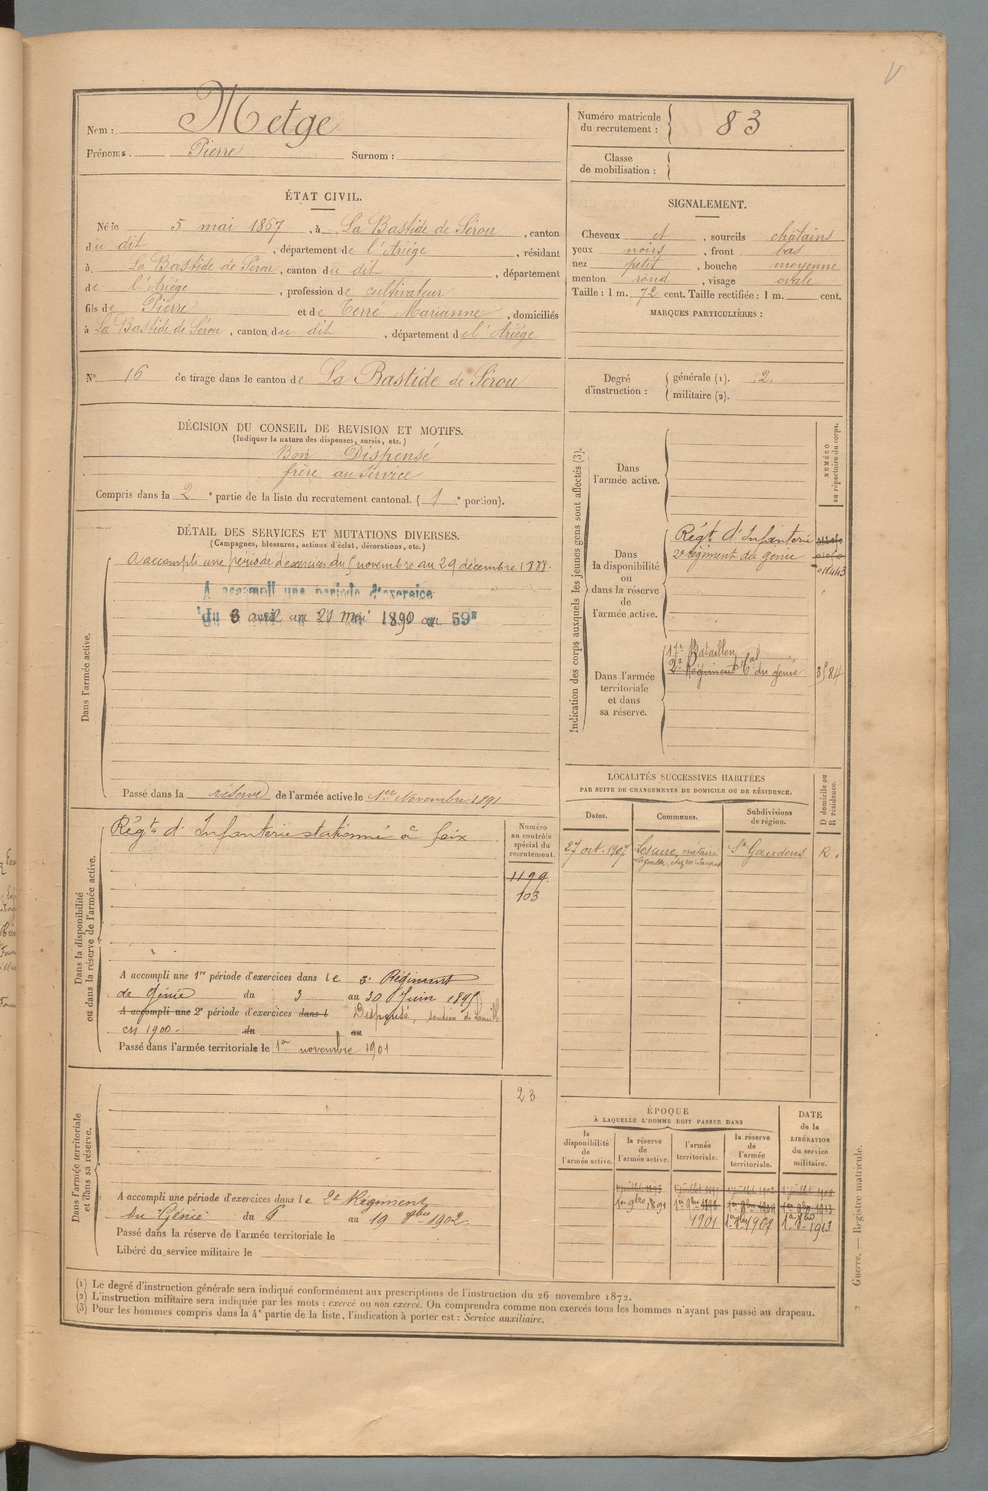 Nom : Metge
Prénoms. Pierre Surnom :
Numéro matricule du recrutement : 83
Classe de mobilisation :
ÉTAT CIVIL.
Né le 5 mai 1867, à La Bastide de Sérou, canton
du dit, département de l'Ariége, résidant
à La Bastide de Sérou, canton du dit, département
de l'Ariége, profession de cultivateur
fils de Pierre et de Terré Marianne, domiciliés
à La Bastide de Sérou, canton du dit, département de l'Ariége
SIGNALEMENT.
Cheveux et, sourcils châtains
yeux noirs, front bas
nez petit, bouche moyenne
menton rond, visage ovale
Taille : 1 m. 72 cent. Taille rectifiée : 1 m. cent.
MARQUES PARTICULIÈRES :
N° 16 de tirage dans le canton de La Bastide de Sérou
Degré d'instruction : générale (1). 2.
militaire (2).
DÉCISION DU CONSEIL DE REVISION ET MOTIFS.
(Indiquer la nature des dispenses, sursis, etc.)
Bon Dispensé
frère au service
Compris dans la 2e partie de la liste du recrutement cantonal. (1e portion).
DÉTAIL DES SERVICES ET MUTATIONS DIVERSES.
(Campagnes, blessures, actions d'éclat, décorations, etc.)
Dans l'armée active.
A accompli une période d'exercices du 5 novembre au 29 décembre 1888.
A accompli une periode d'exercice
du 3 avril au 21 mai 1890 au 59e
Passé dans la réserve de l'armée active le 1er Novembre 1891
Indication des corps auxquels les jeunes gens sont affectés (3).
NUMÉRO au répertoire du corps.
Dans l'armée active.
Dans la disponibilité ou dans la réserve de l'armée active.
Régt d'Infanterie
2e régiment du génie
Dans l'armée territoriale et dans sa réserve.
17e Bataillon
2e Régiment du génie
3584
LOCALITÉS SUCCESSIVES HABITÉES
PAR SUITE DE CHANGEMENTS DE DOMICILE OU DE RÉSIDENCE.
Dates. Communes. Subdivisions de région. D domicile ou R résidence.
27 oct. 1907 St Gaudens R.
Dans la disponibilité ou dans la réserve de l'armée active.
Régt d'Infanterie stationné à Foix
Numéro au contrôle spécial du recrutement.
1199
103
A accompli une 1re période d'exercices dans le 3e Régiment
de Génie du 3 au 30 Juin 1895
A accompli une 2e période d'exercices dans l Dispensé, soutien de famille
en 1900 du au
Passé dans l'armée territoriale le 1er novembre 1901
Dans l'armée territoriale et dans sa réserve.
23
A accompli une période d'exercices dans le 2e Régiment
du Génie du 6 au 19 1902
Passé dans la réserve de l'armée territoriale le
Libéré du service militaire le
ÉPOQUE
À LAQUELLE L'HOMME DOIT PASSER DANS
la disponibilité de l'armée active.
la réserve de l'armée active.
l'armée territoriale.
la réserve de l'armée territoriale.
DATE de la LIBÉRATION du service militaire.
1er 9bre 1891
1901 1907 1913
(1) Le degré d'instruction générale sera indiqué conformément aux prescriptions de l'instruction du 26 novembre 1872.
(2) L'instruction militaire sera indiquée par les mots : exercé ou non exercé. On comprendra comme non exercés tous les hommes n'ayant pas passé au drapeau.
(3) Pour les hommes compris dans la 4e partie de la liste, l'indication à porter est : Service auxiliaire.
Guerre. — Registre matricule.